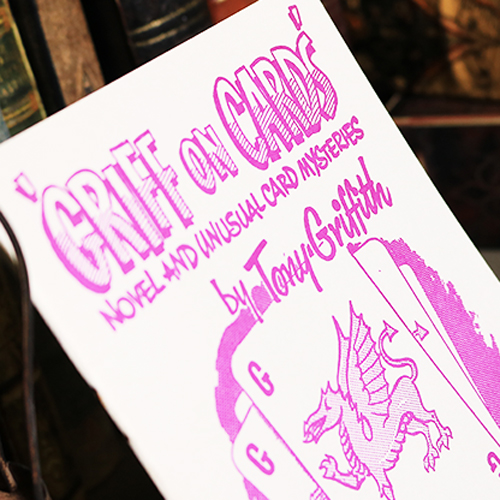 'GRIFF ON CARDS'
NOVEL AND UNUSUAL CARD MYSTERIES
by Tony Griffith
G
G